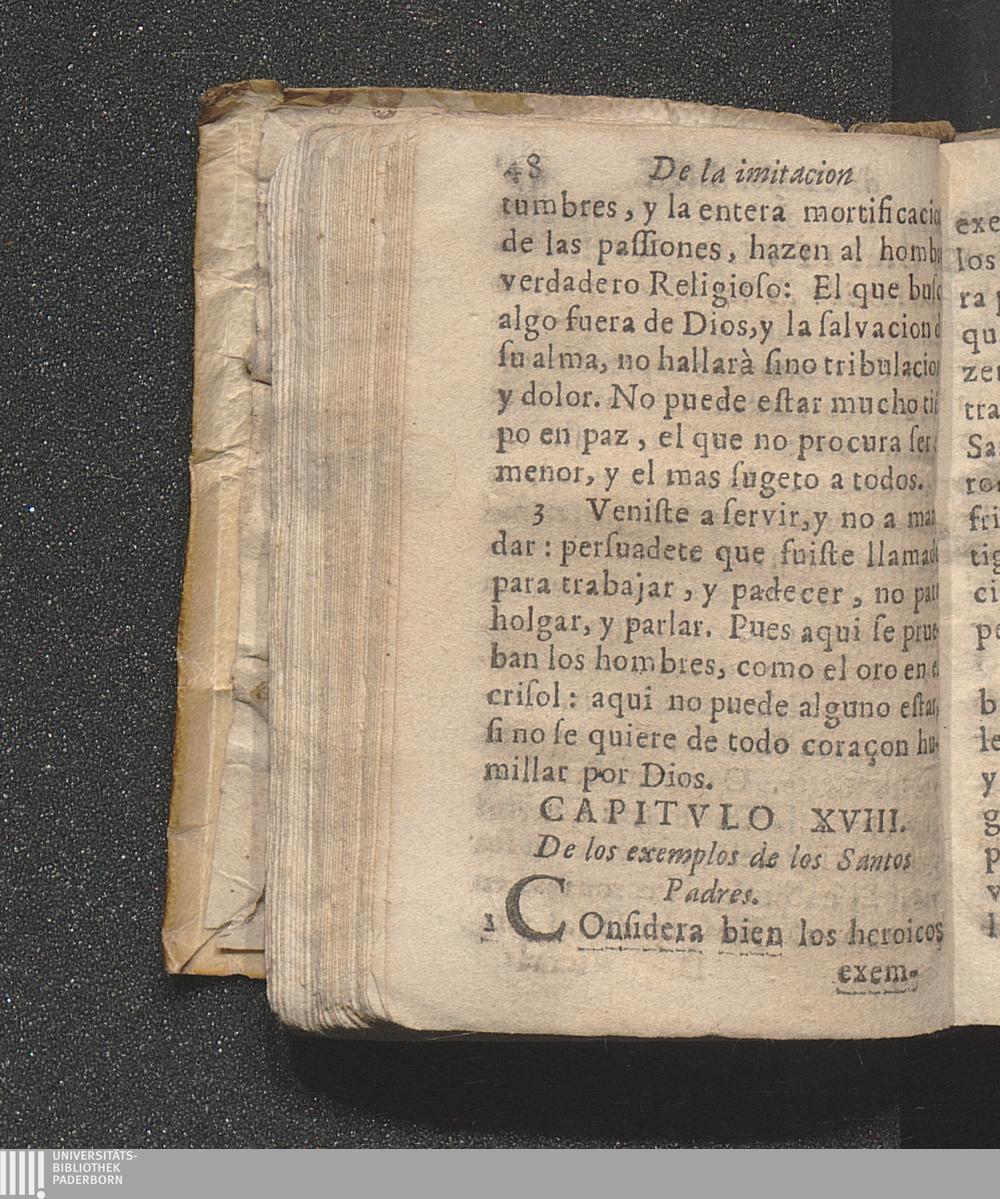 48 De la imitacion
tumbres, y la entera mortificacio
de las paſſiones, hazen al hombr
verdadero Religioſo: El que buſc
algo fuera de Dios, y la ſalvacion d
ſu alma, no hallarà ſino tribulacion
y dolor. No puede eſtar mucho tiẽ
po en paz, el que no procura ſer
menor, y el mas ſugeto a todos.
3 Veniſte a ſervir, y no a man
dar: perſuadete que fuiſte llamado
para trabajar, y padecer, no para
holgar, y parlar. Pues aqui ſe prue-
ban los hombres, como el oro en el
criſol: aqui no puede alguno eſtar,
ſi no ſe quiere de todo coraçon hu-
millar por Dios.
CAPITVLO XVIII.
De los exemplos de los Santos
Padres.
1 COnſidera bien los heroicos
exem-
exe
los
ra
qu
zen
tra
Sa
ro
fri
tig
ci
pe
b
le
y
g
p
v
l
UNIVERSITÄTS-
BIBLIOTHEK
PADERBORN